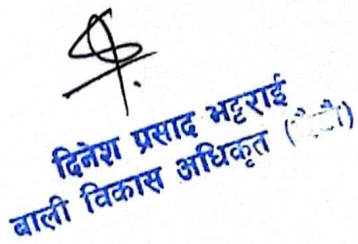 दिनेश प्रसाद भट्टराई
बाली विकास अधिकृत